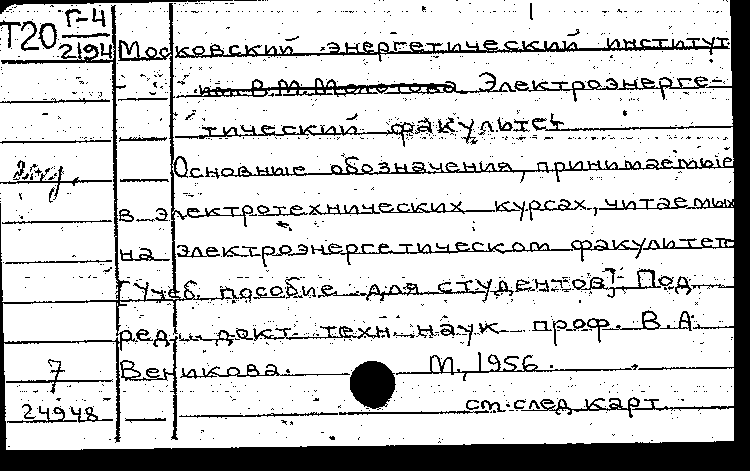 Т20 Г-4
2194
Московский энергетический институт
им. В.М.Молотова Электроэнерге-
тический факультет
Основные обозначения, принимаемые
в электротехнических курсах, читаемых
на электроэнергетическом факультете
[Учеб. пособие для студентов] Под
ред. докт. техн. наук проф. В.А.
Веникова. М., 1956.
7
24948
см.след карт.